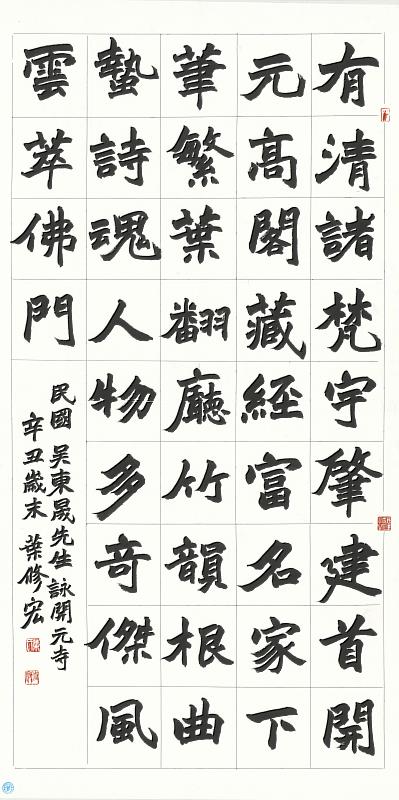 有清諸梵宇肇建首開
元高閣藏經富名家下
筆繁葉翻廳竹韻根曲
蟄詩魂人物多奇傑風
雲萃佛門
民國 吳東晟先生 詠開元寺
辛丑歲末 葉修宏